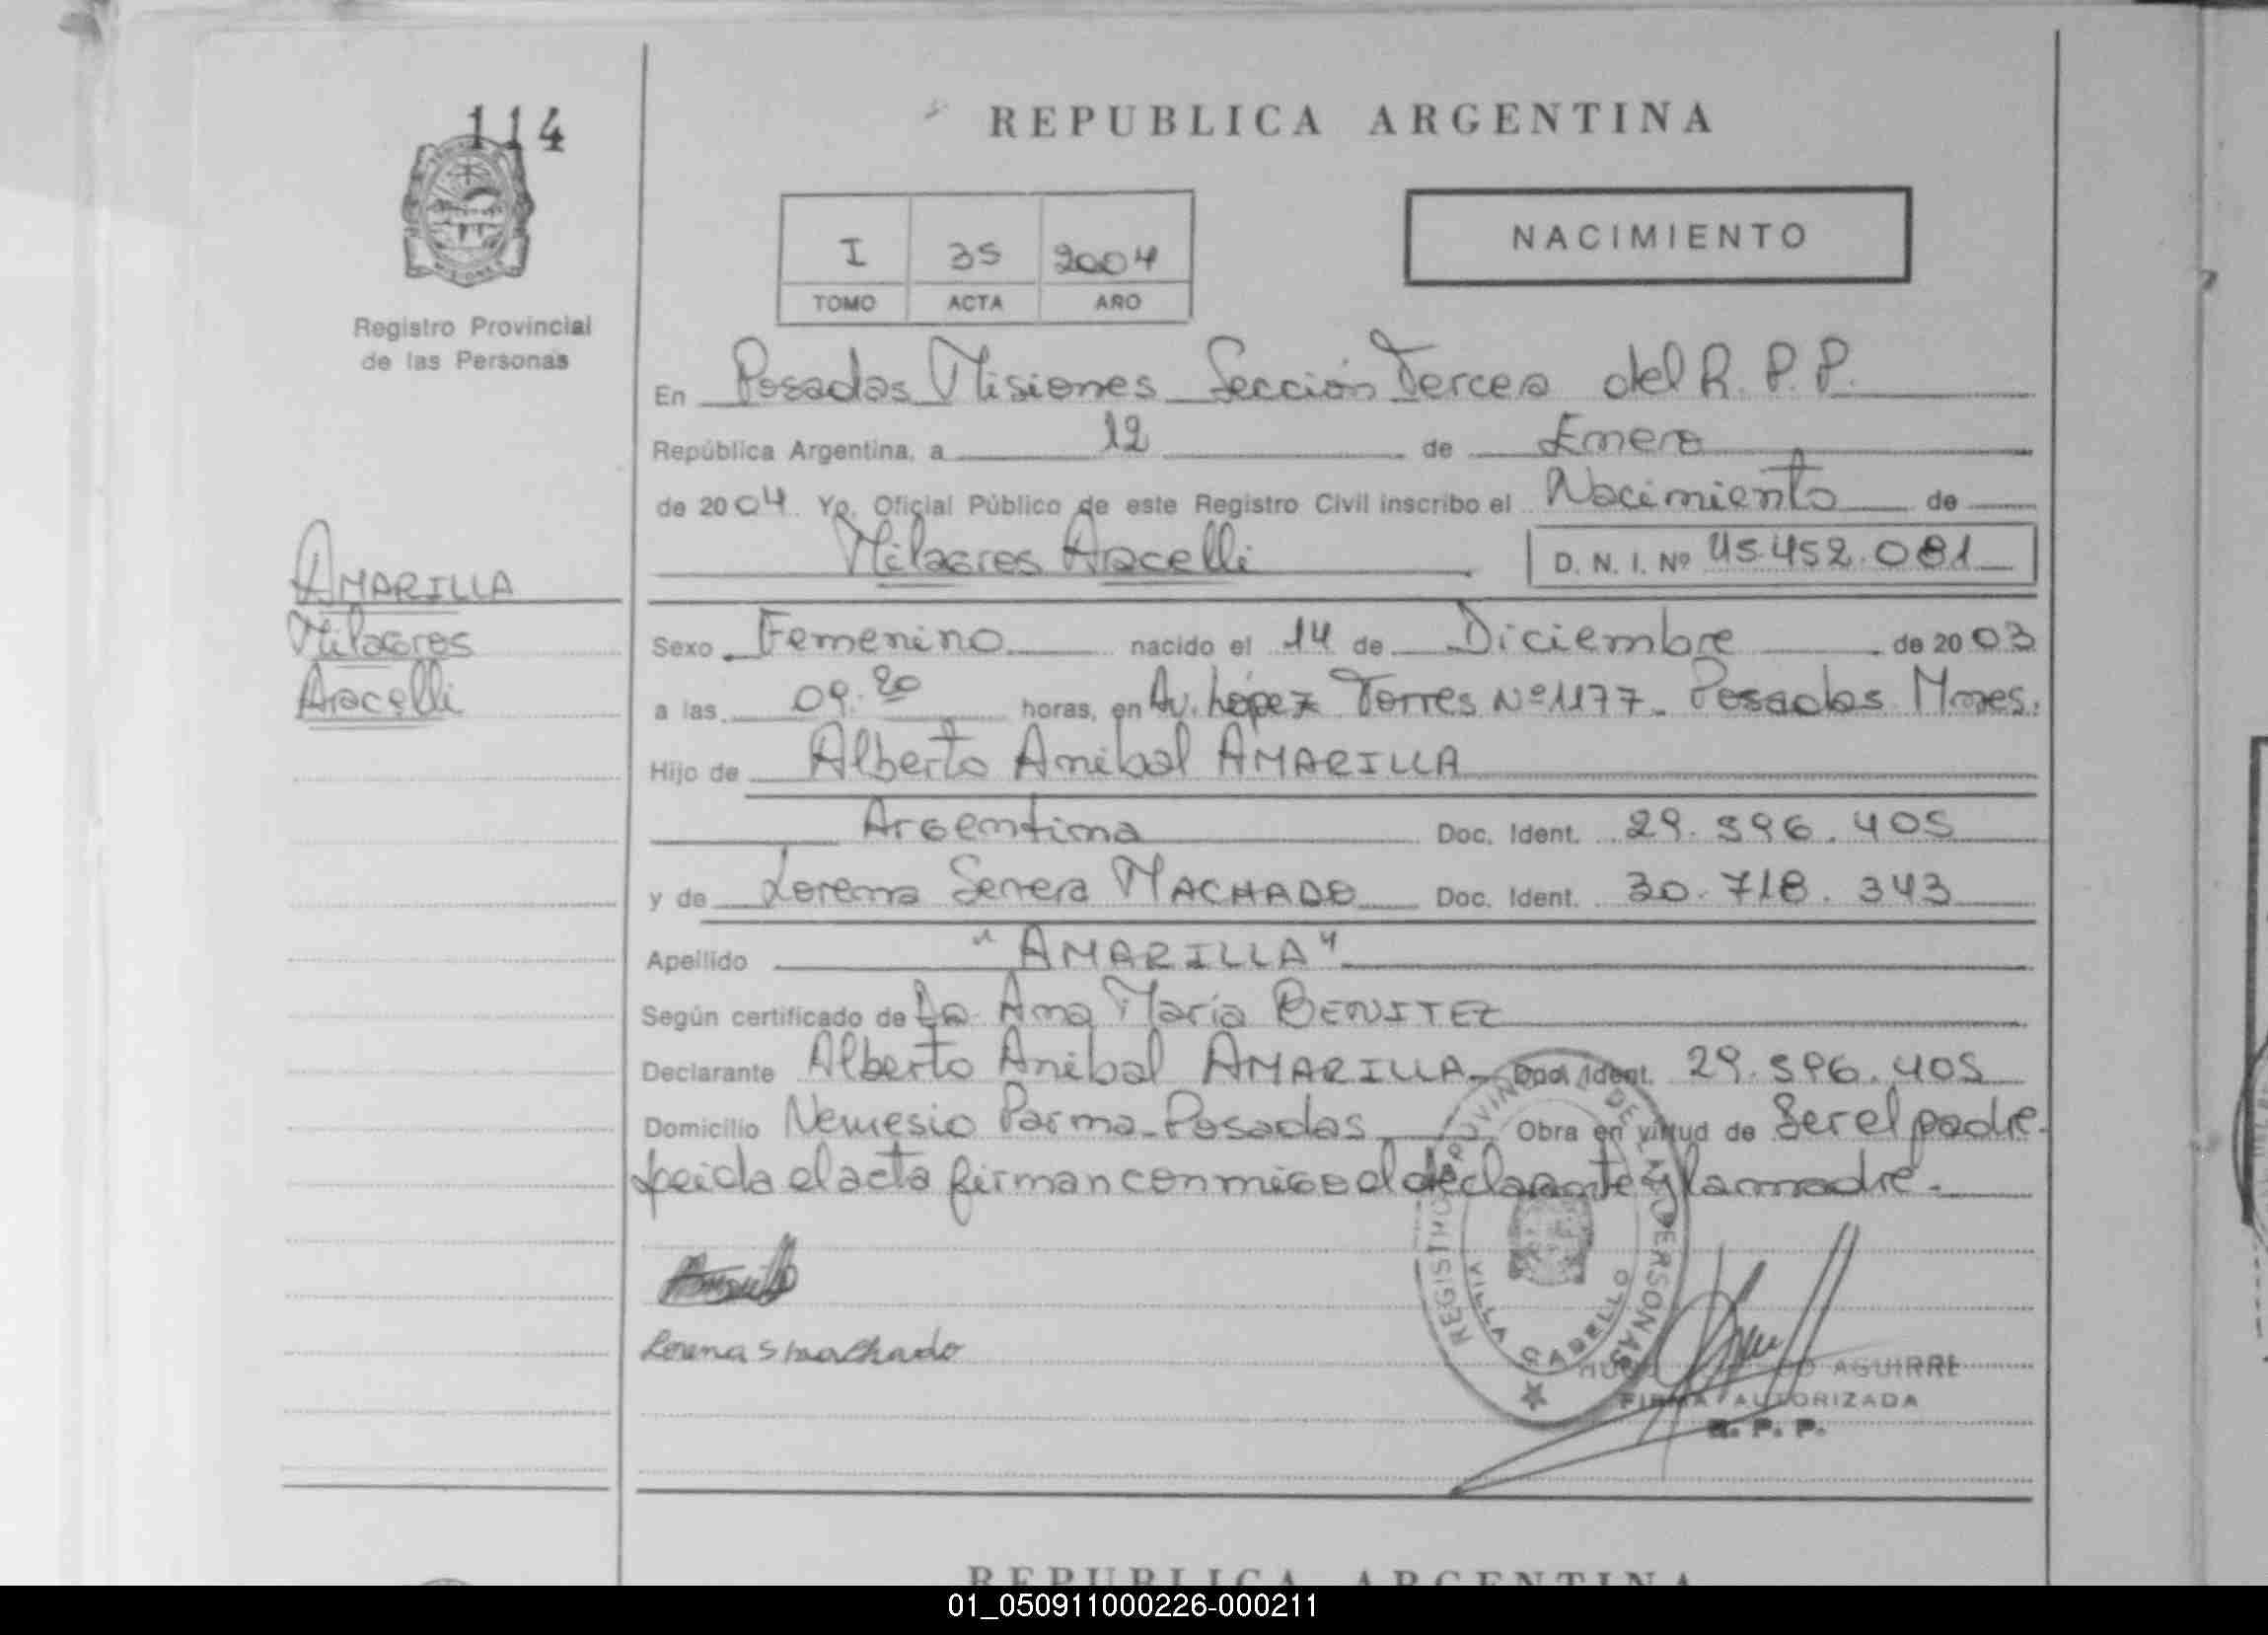 114
REPUBLICA ARGENTINA
I 35 2004
TOMO ACTA AÑO
NACIMIENTO
Registro Provincial
de las Personas
En Posadas Misiones Sección Tercera del R. P. P.
República Argentina, a 12 de Enero
de 2004. Yo, Oficial Público de este Registro Civil inscribo el Nacimiento de
Milagros Aracelli D. N. I. Nº 45.452.081
AMARILLA
Milagros
Aracelli
Sexo Femenino nacido el 14 de Diciembre de 2003
a las 09.20 horas, en Av. López Torres Nº 1177. Posadas Mnes.
Hijo de Alberto Anibal AMARILLA
Argentina Doc. Ident. 29.596.405
y de Lorena Serena MACHADO Doc. Ident. 30.718.343
Apellido "AMARILLA"
Según certificado de Da. Ana María BENITEZ
Declarante Alberto Anibal AMARILLA Doc. Ident. 29.596.405
Domicilio Nemesio Parma - Posadas Obra en virtud de Ser el padre.
Leida el acta firman conmigo el declarante y la madre.
Lorena S Machado
REGISTRO PROVINCIAL DE LAS PERSONAS
VILLA CABELLO
AGUIRRE
FIRMA AUTORIZADA
R. P. P.
REPUBLICA ARGENTINA
01_050911000226-000211